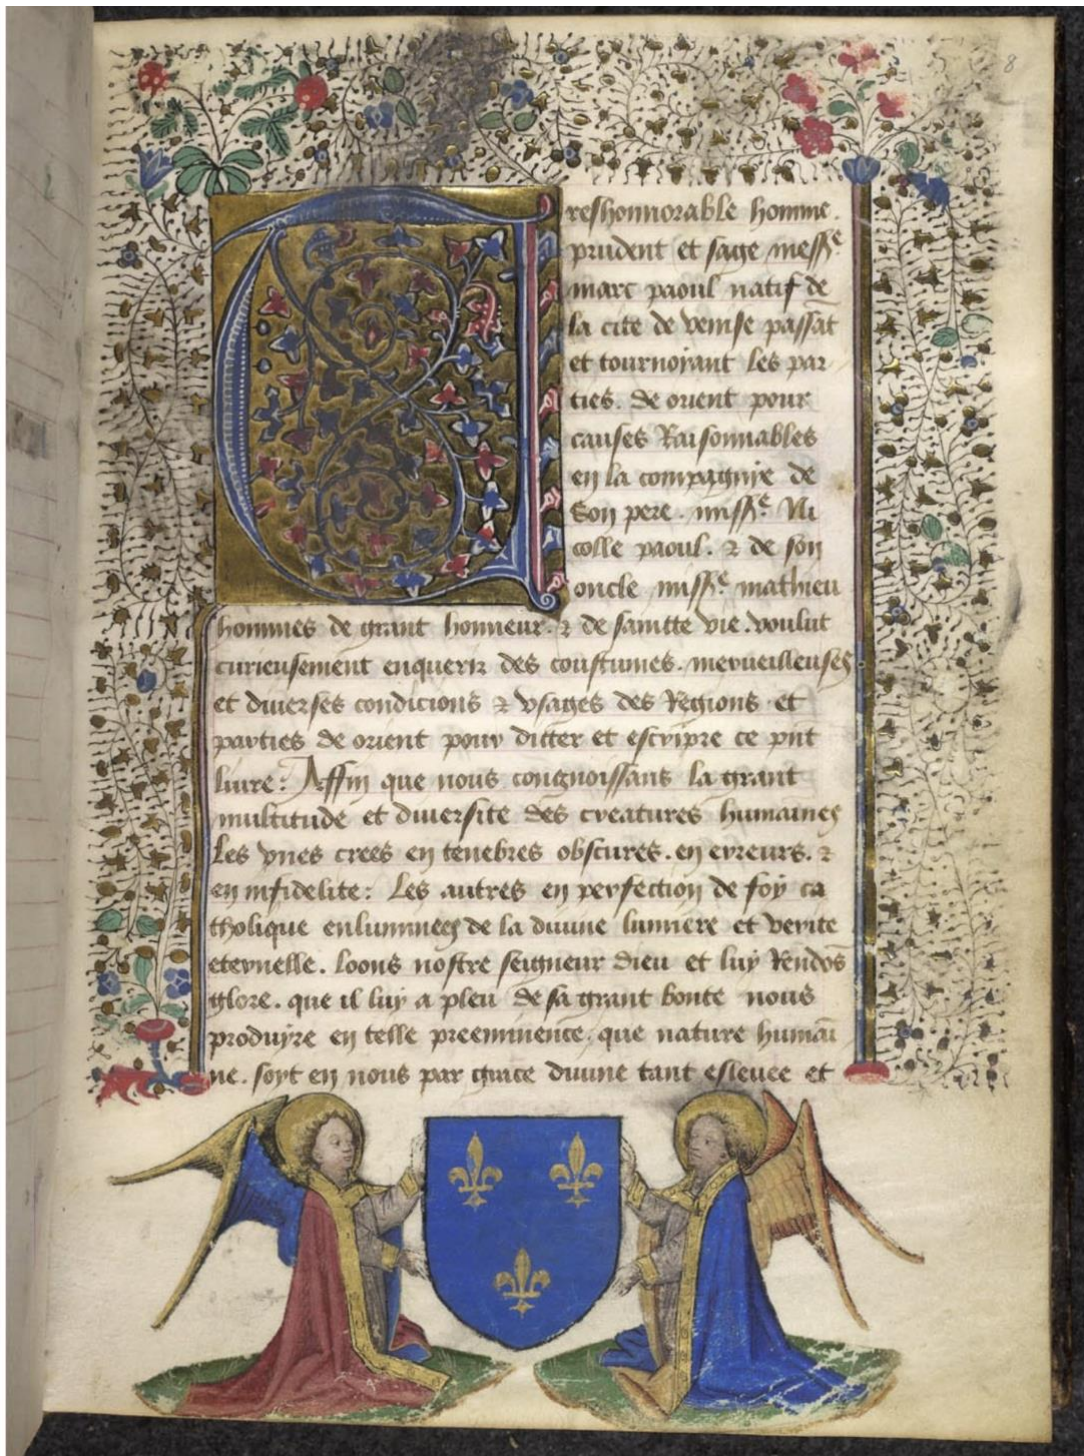 8
Treshonnorable homme.
prudent et sage messe
marc paoul natif de
la cite de venise passāt
et tournoyant les par
ties. de orient pour
causes Raisonnables
en la compagnie de
Son pere. missre Ni
colle paoul. ⁊ de son
oncle missre mathieu
hommes de grant honneur. ⁊ de saintte vie. voulut
curieusement enquerir des coustumes. merueilleuses
et diuerses condicions ⁊ vsages des Regions et
parties de orient pour ditter et escripre ce pnt
liure: Affin que nous congnoissans la grant
multitude et diuersite des creatures humaines
Les vnes crees en tenebres obscures. en erreurs. ⁊
en infidelite: Les autres en perfection de foy ca
tholique enluminees de la diuine lumiere et verite
eternelle. loons nostre seigneur dieu et luy Rendōs
glore. que il luy a pleu de sa grant bonte nous
produyre en telle preeminence. que nature humai
ne. soyt en nous par grace diuine tant esleuee et